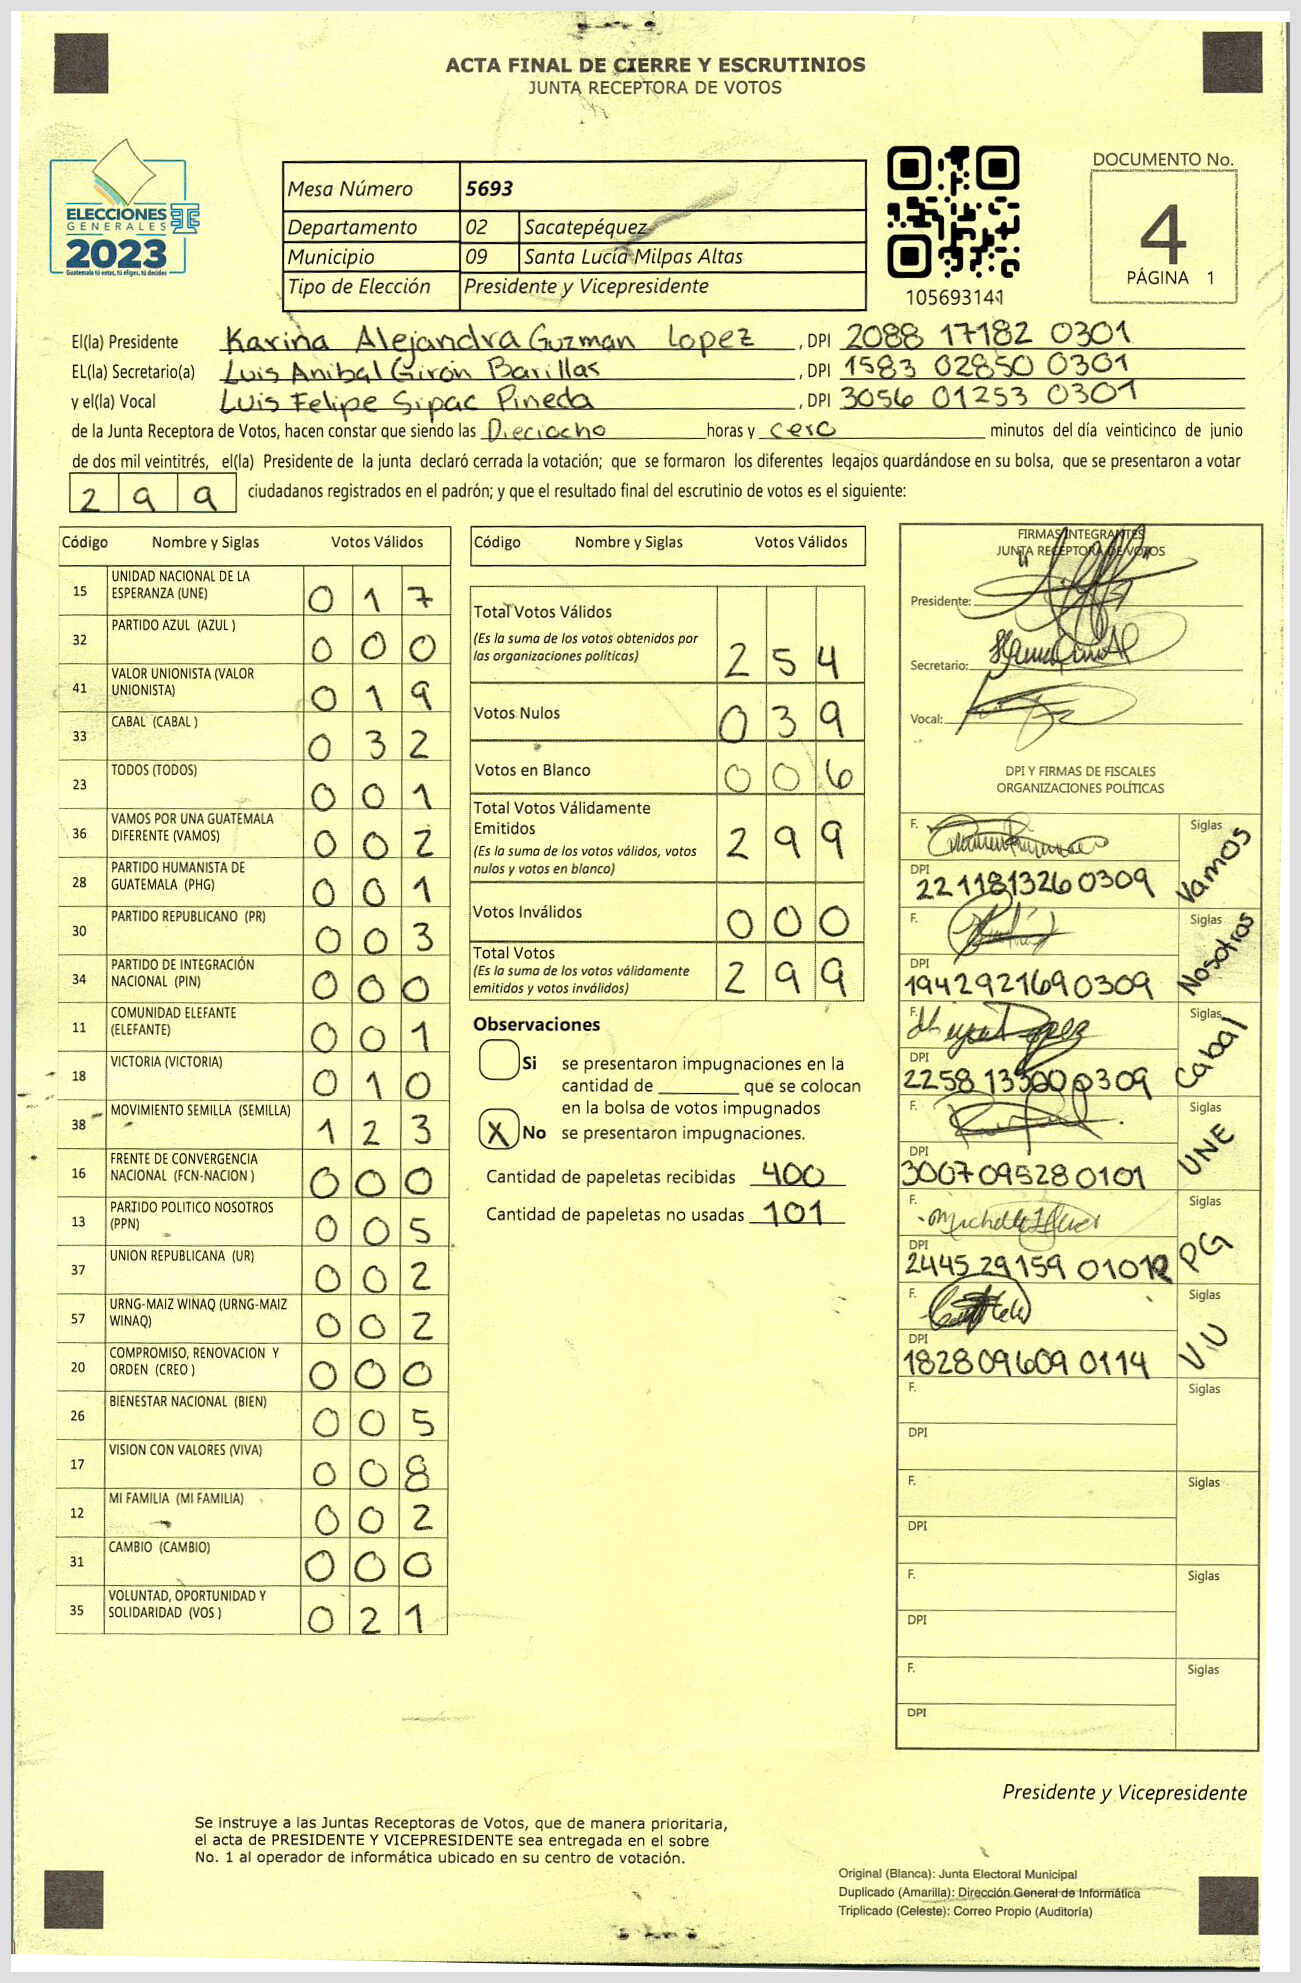 ACTA FINAL DE CIERRE Y ESCRUTINIOS
JUNTA RECEPTORA DE VOTOS
ELECCIONES
GENERALES
2023
Guatemala tú estas, tú eliges, tú decides
Mesa Número 5693
Departamento 02 Sacatepéquez
Municipio 09 Santa Lucía Milpas Altas
Tipo de Elección Presidente y Vicepresidente
105693141
DOCUMENTO No.
4
PÁGINA 1
El(la) Presidente Karina Alejandra Guzman Lopez , DPI 2088 17182 0301
EL(la) Secretario(a) Luis Anibal Girón Barillas , DPI 1583 02850 0301
y el(la) Vocal Luis Felipe Sipac Pineda , DPI 3056 01253 0301
de la Junta Receptora de Votos, hacen constar que siendo las Dieciocho horas y cero minutos del día veinticinco de junio
de dos mil veintitrés, el(la) Presidente de la junta declaró cerrada la votación; que se formaron los diferentes legajos guardándose en su bolsa, que se presentaron a votar
299 ciudadanos registrados en el padrón; y que el resultado final del escrutinio de votos es el siguiente:
Código Nombre y Siglas Votos Válidos
15 UNIDAD NACIONAL DE LA
ESPERANZA (UNE) 017
32 PARTIDO AZUL (AZUL ) 000
41 VALOR UNIONISTA (VALOR
UNIONISTA) 019
33 CABAL (CABAL ) 032
23 TODOS (TODOS) 001
36 VAMOS POR UNA GUATEMALA
DIFERENTE (VAMOS) 002
28 PARTIDO HUMANISTA DE
GUATEMALA (PHG) 001
30 PARTIDO REPUBLICANO (PR) 003
34 PARTIDO DE INTEGRACIÓN
NACIONAL (PIN) 000
11 COMUNIDAD ELEFANTE
(ELEFANTE) 001
18 VICTORIA (VICTORIA) 010
38 MOVIMIENTO SEMILLA (SEMILLA) 123
16 FRENTE DE CONVERGENCIA
NACIONAL (FCN-NACION ) 000
13 PARTIDO POLITICO NOSOTROS
(PPN) 005
37 UNION REPUBLICANA (UR) 002
57 URNG-MAIZ WINAQ (URNG-MAIZ
WINAQ) 002
20 COMPROMISO, RENOVACION Y
ORDEN (CREO ) 000
26 BIENESTAR NACIONAL (BIEN) 005
17 VISION CON VALORES (VIVA) 008
12 MI FAMILIA (MI FAMILIA) 002
31 CAMBIO (CAMBIO) 000
35 VOLUNTAD, OPORTUNIDAD Y
SOLIDARIDAD (VOS ) 021
Código Nombre y Siglas Votos Válidos
Total Votos Válidos
(Es la suma de los votos obtenidos por
las organizaciones políticas) 254
Votos Nulos 039
Votos en Blanco 006
Total Votos Válidamente
Emitidos 299
(Es la suma de los votos válidos, votos
nulos y votos en blanco)
Votos Inválidos 000
Total Votos
(Es la suma de los votos válidamente
emitidos y votos inválidos) 299
Observaciones
Si se presentaron impugnaciones en la
cantidad de ________ que se colocan
en la bolsa de votos impugnados
X No se presentaron impugnaciones.
Cantidad de papeletas recibidas 400
Cantidad de papeletas no usadas 101
FIRMAS INTEGRANTES
JUNTA RECEPTORA DE VOTOS
Presidente:
Secretario:
Vocal:
DPI Y FIRMAS DE FISCALES
ORGANIZACIONES POLÍTICAS
F. Siglas
DPI Vamos
2211813260309
F. Siglas
DPI Nosotros
1942921690309
F. Siglas
DPI Cabal
2258 13300 0309
F. Siglas
DPI UNE
3007095280101
F. Siglas
DPI PG
2445 29159 0101
F. Siglas
DPI V.U
1828096090114
F. Siglas
DPI
F. Siglas
DPI
F. Siglas
DPI
F. Siglas
DPI
Presidente y Vicepresidente
Se instruye a las Juntas Receptoras de Votos, que de manera prioritaria,
el acta de PRESIDENTE Y VICEPRESIDENTE sea entregada en el sobre
No. 1 al operador de informática ubicado en su centro de votación.
Original (Blanca): Junta Electoral Municipal
Duplicado (Amarilla): Dirección General de Informática
Triplicado (Celeste): Correo Propio (Auditoría)